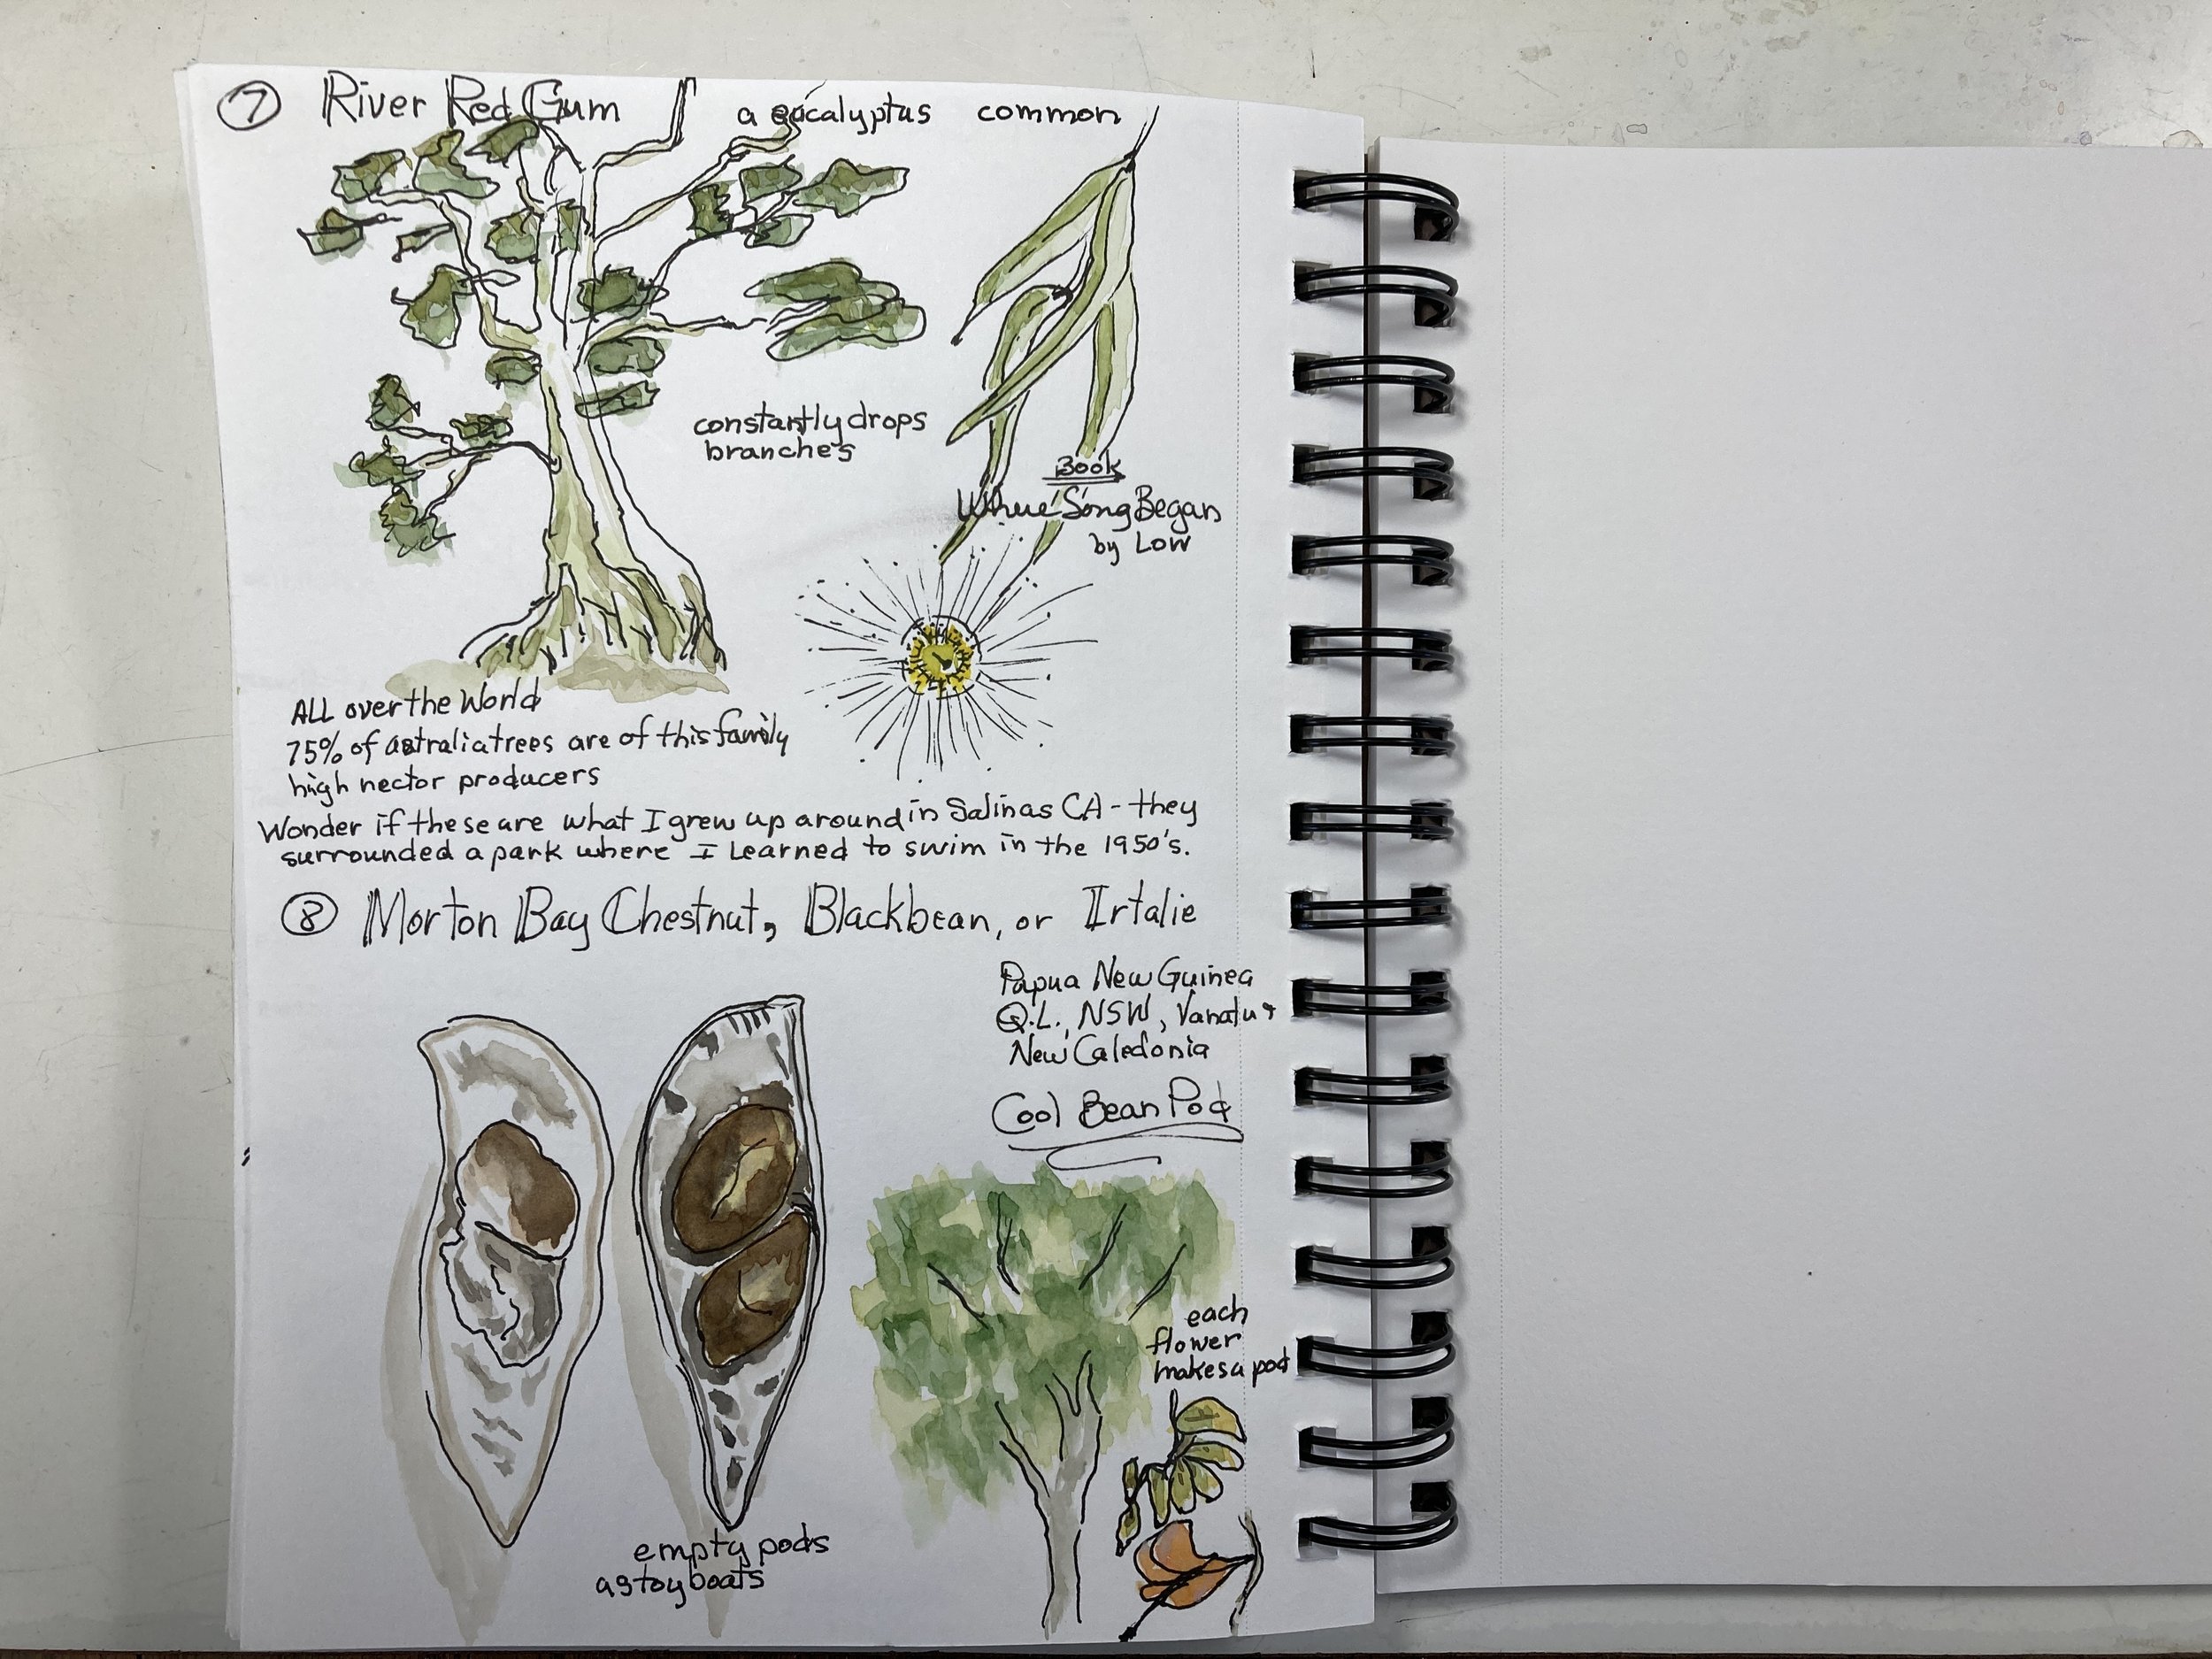 7 River Red Gum a eucalyptus common
constantly drops
branches
Book
Where Song Began
by Low
ALL over the World
75% of astralia trees are of this family
high nector producers
Wonder if these are what I grew up around in Salinas CA - they
surrounded a park where I Learned to swim in the 1950's.
8 Morton Bay Chestnut, Blackbean, or Irtalie
Papua New Guinea
Q.L., NSW, Vanatu &
New Caledonia
Cool Bean Pod
each
flower
makes a pod
empty pods
as toy boats